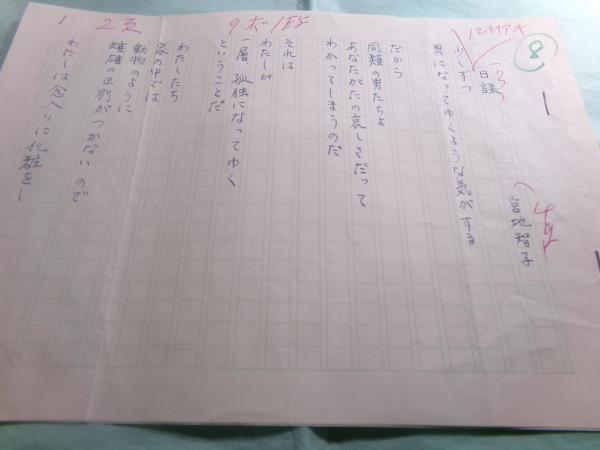 8
12Qアキ
日課
宮地智子
少しずつ
男になってゆくような気がする
だから
同類の男たちよ
あなたがたの哀しさだって
わかってしまうのだ
それは
わたしが
一層 孤独になってゆく
ということだ
わたしたち
家の中では
動物のように
雌雄の区別がつかないので
わたしは念入りに化粧をし
9ポ1段
2頁
1